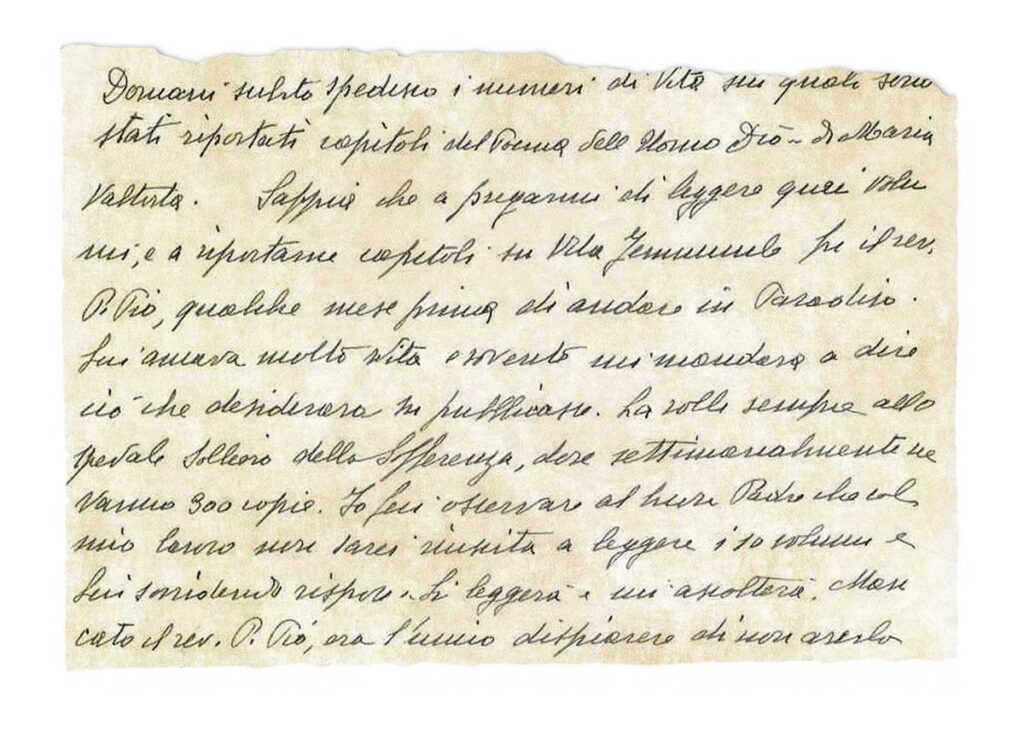 Domani subito spedisco i numeri di Vita sui quali sono
stati riportati capitoli del Poema dell'Uomo Dio - di Maria
Valtorta. Sappia che a pregarmi di leggere quei volu
mi, e a riportarne capitoli su Vita Femminile fu il rev.
P. Pio, qualche mese prima di andare in Paradiso.
Lui amava molto Vita e sovente mi mandava a dire
ciò che desiderava si pubblicasse. La volle sempre allo
spedale Sollievo della Sofferenza, dove settimanalmente ne
vanno 300 copie. Io feci osservare al buon Padre che col
mio lavoro non sarei riuscita a leggere i 10 volumi e
Lui sorridendo rispose. Li leggerà e mi ascolterà. Man
cato il rev. P. Pio, era l'unico dispiacere di non averlo